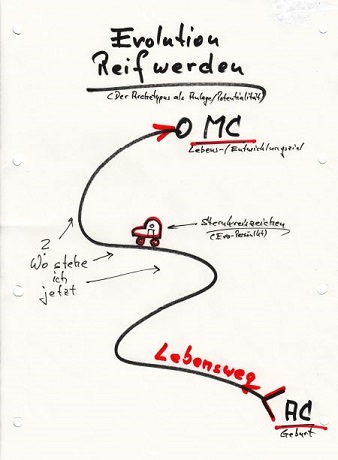 Evolution
Reifwerden
(Der Archetypus als Anlage/Potentialität)
MC
Lebens-/Entwicklungsziel
Sternkreiszeichen
?
Wo stehe
ich
jetzt
Lebensweg
AC
Geburt